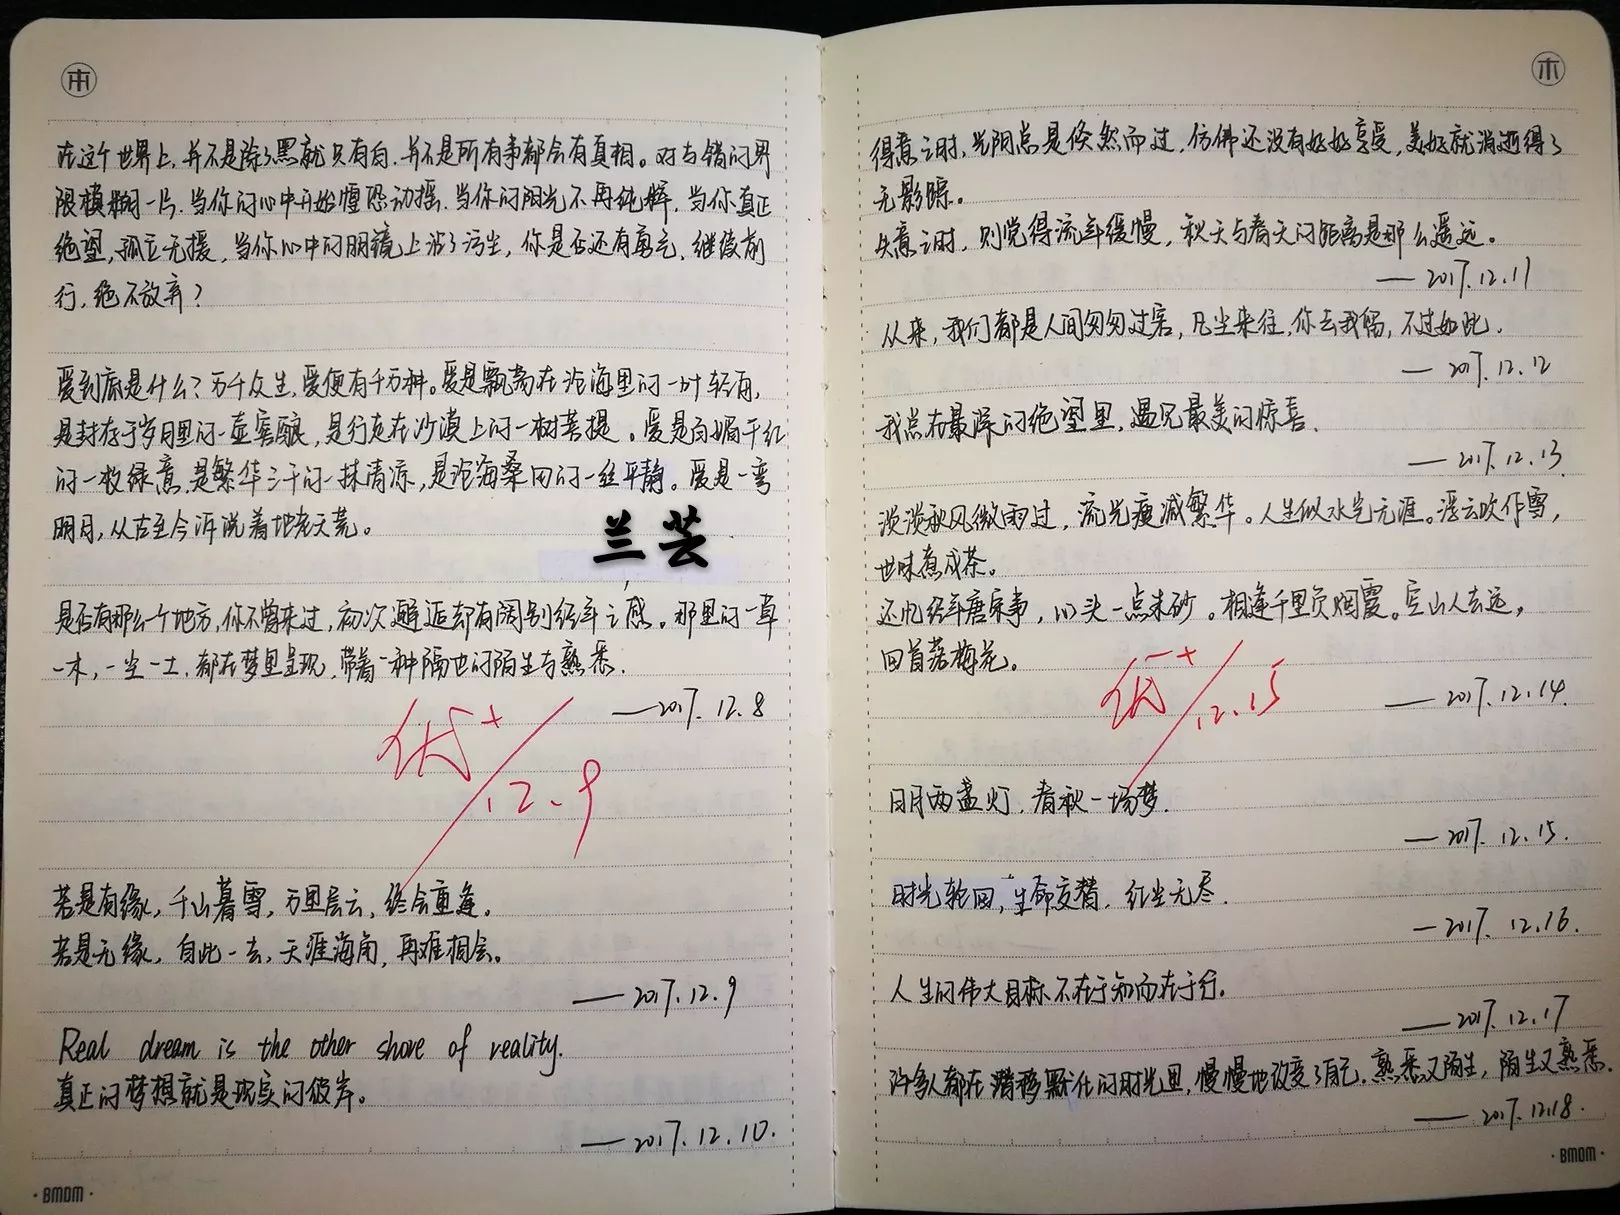 在这个世界上,并不是除了黑就只有白,并不是所有事都会有真相。对与错的界
限模糊一片,当你的心中开始惶恐动摇,当你的阳光不再纯粹,当你真正
绝望,孤立无援,当你心中的明镜上沾了污尘,你是否还有勇气,继续前
行,绝不放弃?
爱到底是什么?万千众生,爱便有千万种。爱是飘荡在沧海里的一叶轻舟,
是封存于岁月里的一壶蜜酿,是行走在沙漠上的一树菩提。爱是百媚千红
的一枚绿意,是繁华三千的一抹清凉,是沧海桑田的一丝平静。爱是一弯
明月,从古至今诉说着地老天荒。
兰芸
是否有那么一个地方,你不曾来过,初次邂逅却有阔别经年之感。那里的一草
一木,一尘一土,都在梦里呈现,带着一种隔世的陌生与熟悉.
—2017.12.8
优+
12.9
若是有缘,千山暮雪,万里层云,终会重逢。
若是无缘,自此一去,天涯海角,再难相会。
—2017.12.9
Real dream is the other shore of reality.
真正的梦想就是现实的彼岸。
—2017.12.10.
·BMDM·
本
得意之时,光阴总是倏然而过,仿佛还没有好好享受,美好就消逝得了
无影踪。
失意之时,则觉得流年缓慢,秋天与春天的距离是那么遥远。
—2017.12.11
从来,我们都是人间匆匆过客,凡尘来往,你去我留,不过如此.
—2017.12.12
我总在最深的绝望里,遇见最美的惊喜.
—2017.12.13.
淡淡秋风微雨过,流光瘦减繁华。人生似水岂无涯。浮云吹作雪,
世味煮成茶。
还忆经年唐宋事,心头一点朱砂。相逢千里负烟霞。空山人去远,
回首落梅花。
—2017.12.14.
优+
12.15
日月两盏灯,春秋一场梦.
—2017.12.15.
时光轮回,生命交替,红尘无尽.
—2017.12.16.
人生的伟大目标不在于知而在于行.
—2017.12.17
许多人都在潜移默化的时光里,慢慢地改变了自己.熟悉又陌生,陌生又熟悉.
—2017.12.18.
·BMDM·